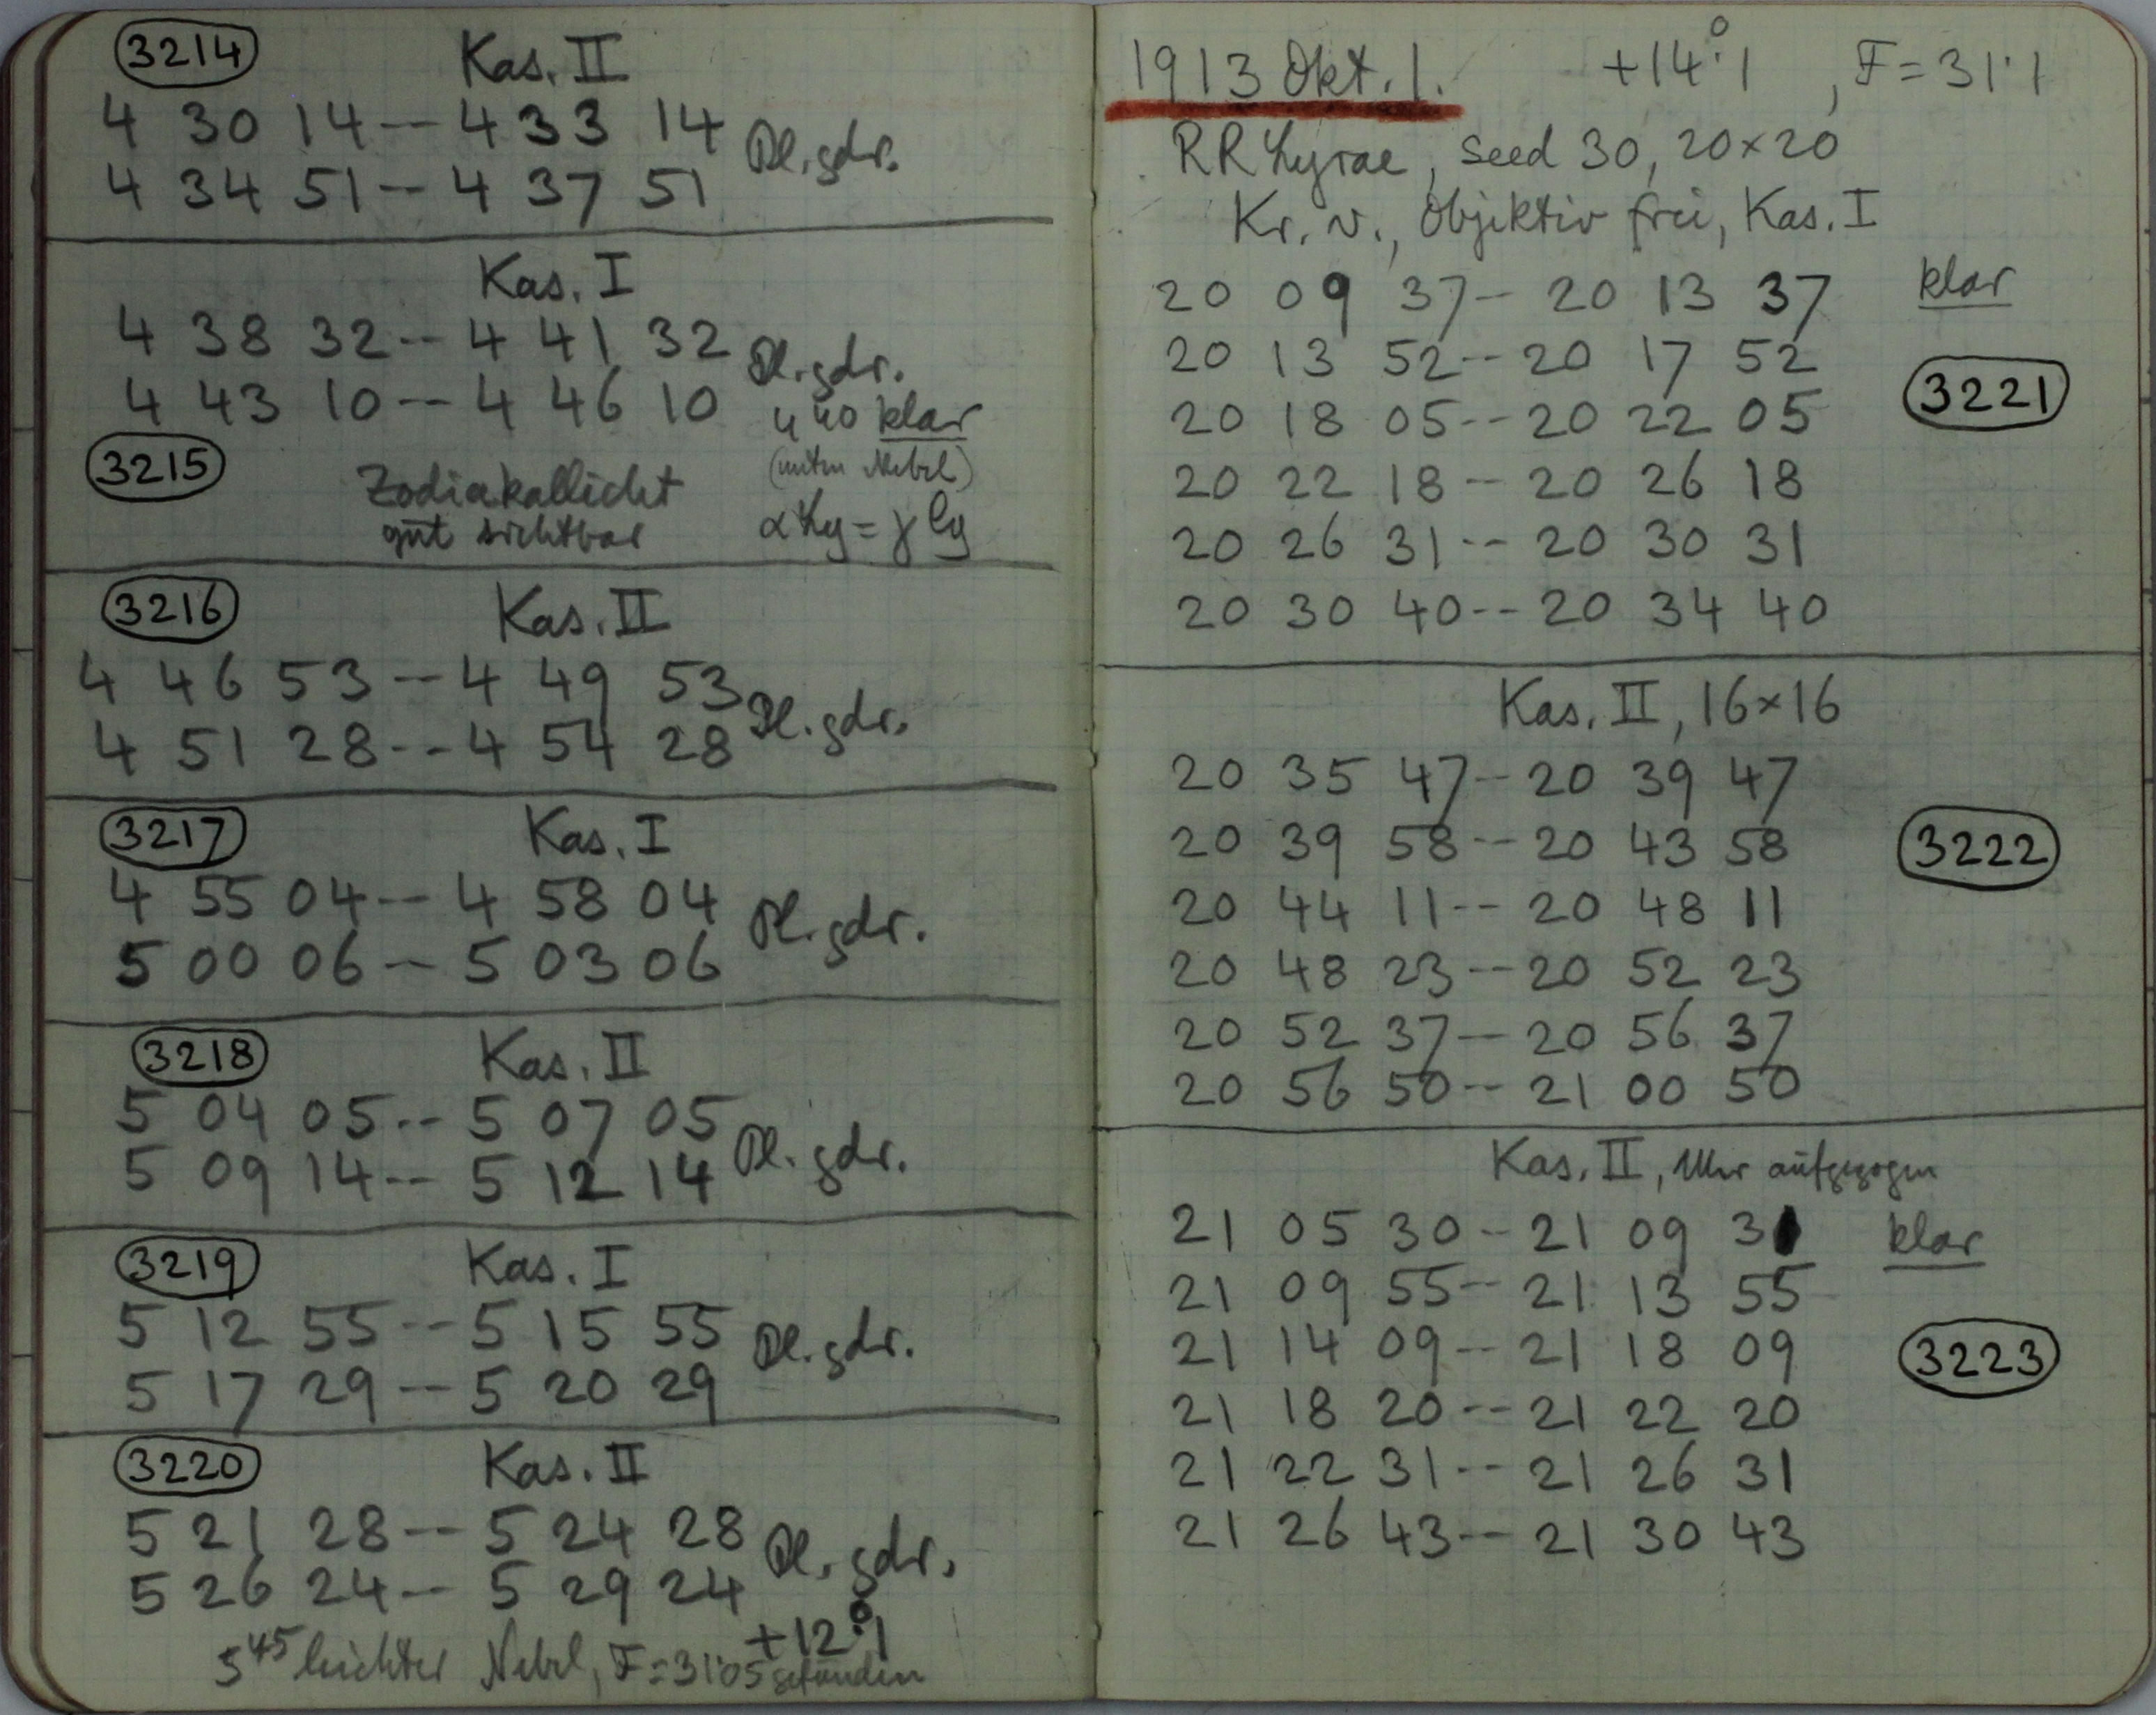 3214 Kas. II
4 30 14 -- 4 33 14 Pl. gdr.
4 34 51 -- 4 37 51
Kas. I
4 38 32 -- 4 41 32 Pl. gdr.
4 43 10 -- 4 46 10 4 40 klar
3215 Zodiakallicht (unten Nebel)
gut sichtbar α Ly = γ Cy
3216 Kas. II
4 46 53 -- 4 49 53 Pl. gdr.
4 51 28 -- 4 54 28
3217 Kas. I
4 55 04 -- 4 58 04 Pl. gdr.
5 00 06 -- 5 03 06
3218 Kas. II
5 04 05 -- 5 07 05 Pl. gdr.
5 09 14 -- 5 12 14
3219 Kas. I
5 12 55 -- 5 15 55 Pl. gdr.
5 17 29 -- 5 20 29
3220 Kas. II
5 21 28 -- 5 24 28 Pl. gdr.
5 26 24 -- 5 29 24
+12°.1
5 45 leichter Nebel, F = 31.05 gefunden
1913 Okt. 1. +14°.1, F = 31.1
RR Lyrae, seed 30, 20×20
Kr. v., Objektiv frei, Kas. I
20 09 37 -- 20 13 37 klar
20 13 52 -- 20 17 52
20 18 05 -- 20 22 05 3221
20 22 18 -- 20 26 18
20 26 31 -- 20 30 31
20 30 40 -- 20 34 40
Kas. II, 16×16
20 35 47 -- 20 39 47
20 39 58 -- 20 43 58 3222
20 44 11 -- 20 48 11
20 48 23 -- 20 52 23
20 52 37 -- 20 56 37
20 56 50 -- 21 00 50
Kas. II, Uhr aufgezogen
21 05 30 -- 21 09 31 klar
21 09 55 -- 21 13 55
21 14 09 -- 21 18 09 3223
21 18 20 -- 21 22 20
21 22 31 -- 21 26 31
21 26 43 -- 21 30 43